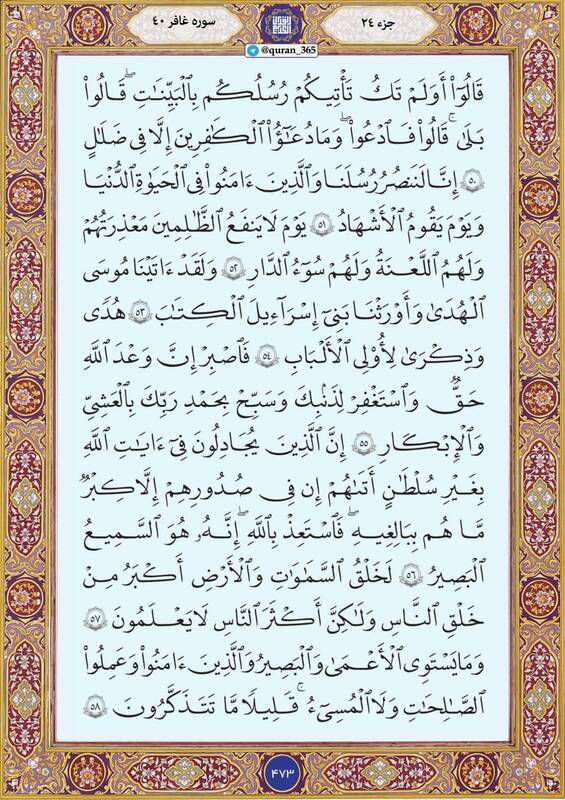 جزء ۲۴
سوره غافر ۴۰
@quran_365
قَالُوٓا۟ أَوَلَمْ تَكُ تَأْتِيكُمْ رُسُلُكُم بِالْبَيِّنَـٰتِ ۖ قَالُوا۟
بَلَىٰ ۚ قَالُوا۟ فَادْعُوا۟ ۗ وَمَا دُعَـٰٓؤُا۟ الْكَـٰفِرِينَ إِلَّا فِى ضَلَـٰلٍ
۵۰ إِنَّا لَنَنصُرُ رُسُلَنَا وَالَّذِينَ ءَامَنُوا۟ فِى الْحَيَوٰةِ الدُّنْيَا
وَيَوْمَ يَقُومُ الْأَشْهَـٰدُ ۵۱ يَوْمَ لَا يَنفَعُ الظَّـٰلِمِينَ مَعْذِرَتُهُمْ
وَلَهُمُ اللَّعْنَةُ وَلَهُمْ سُوٓءُ الدَّارِ ۵۲ وَلَقَدْ ءَاتَيْنَا مُوسَى
الْهُدَىٰ وَأَوْرَثْنَا بَنِىٓ إِسْرَٰٓءِيلَ الْكِتَـٰبَ ۵۳ هُدًى
وَذِكْرَىٰ لِأُو۟لِى الْأَلْبَـٰبِ ۵۴ فَاصْبِرْ إِنَّ وَعْدَ اللَّهِ
حَقٌّ وَاسْتَغْفِرْ لِذَنۢبِكَ وَسَبِّحْ بِحَمْدِ رَبِّكَ بِالْعَشِىِّ
وَالْإِبْكَـٰرِ ۵۵ إِنَّ الَّذِينَ يُجَـٰدِلُونَ فِىٓ ءَايَـٰتِ اللَّهِ
بِغَيْرِ سُلْطَـٰنٍ أَتَىٰهُمْ إِن فِى صُدُورِهِمْ إِلَّا كِبْرٌ
مَّا هُم بِبَـٰلِغِيهِ ۚ فَاسْتَعِذْ بِاللَّهِ ۖ إِنَّهُۥ هُوَ السَّمِيعُ
الْبَصِيرُ ۵۶ لَخَلْقُ السَّمَـٰوَٰتِ وَالْأَرْضِ أَكْبَرُ مِنْ
خَلْقِ النَّاسِ وَلَـٰكِنَّ أَكْثَرَ النَّاسِ لَا يَعْلَمُونَ ۵۷
وَمَا يَسْتَوِى الْأَعْمَىٰ وَالْبَصِيرُ وَالَّذِينَ ءَامَنُوا۟ وَعَمِلُوا۟
الصَّـٰلِحَـٰتِ وَلَا الْمُسِىٓءُ ۚ قَلِيلًا مَّا تَتَذَكَّرُونَ ۵۸
۴۷۳